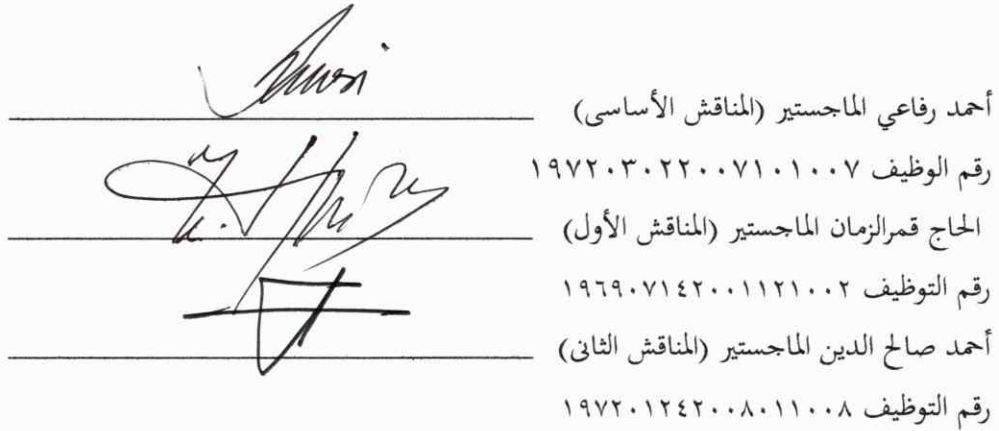 أحمد رفاعي الماجستير (المناقش الأساسى)
رقم الوظيف ١٩٧٢٠٣٠٢٢٠٠٧١٠١٠٠٧
الحاج قمرالزمان الماجستير (المناقش الأول)
رقم التوظيف ١٩٦٩٠٧١٤٢٠٠١١٢١٠٠٢
أحمد صالح الدين الماجستير (المناقش الثانى)
رقم التوظيف ١٩٧٢٠١٢٤٢٠٠٨٠١١٠٠٨